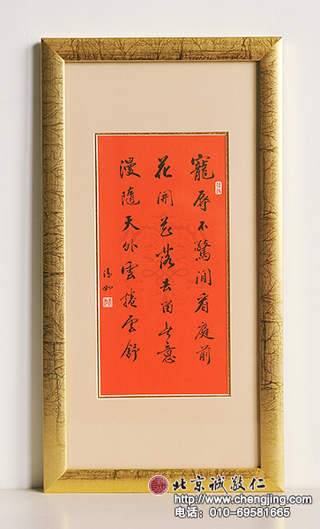 寵辱不驚閒看庭前
花開花落去留无意
漫隨天外雲捲雲舒
北京誠敬仁
http://www.chengjing.com
电话：010-69581665